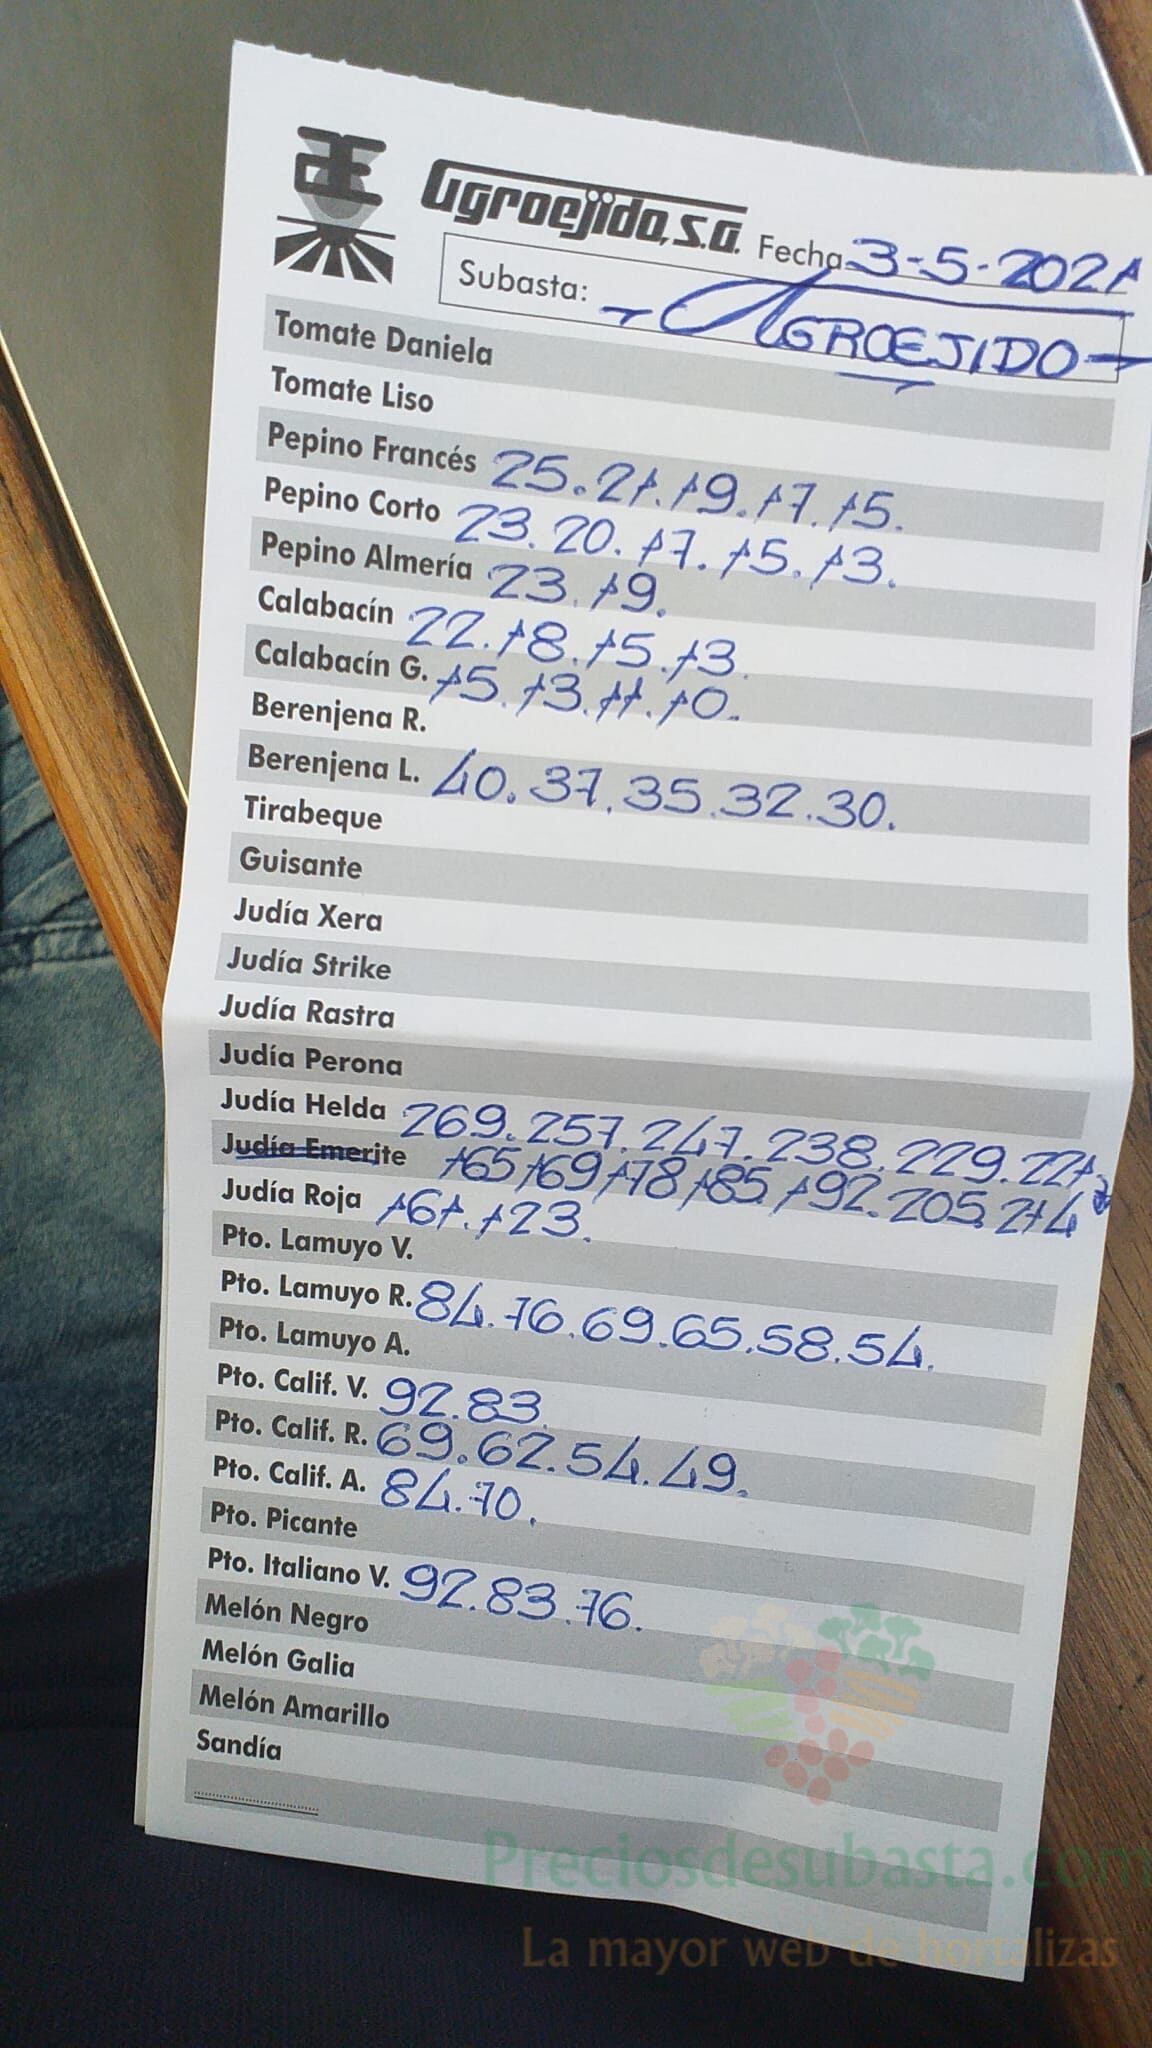 Agroejido, S.A. Fecha 3-5-2021
Subasta: - AGROEJIDO -
Tomate Daniela
Tomate Liso
Pepino Francés 25. 21. 19. 17. 15.
Pepino Corto 23. 20. 17. 15. 13.
Pepino Almería 23. 19.
Calabacín 22. 18. 15. 13.
Calabacín G. 15. 13. 11. 10.
Berenjena R.
Berenjena L. 40. 37. 35. 32. 30.
Tirabeque
Guisante
Judía Xera
Judía Strike
Judía Rastra
Judía Perona
Judía Helda 269. 257. 247. 238. 229. 221
Judía Emerite 165 169 178 185 192. 205. 214
Judía Roja 161. 123.
Pto. Lamuyo V.
Pto. Lamuyo R. 84. 76. 69. 65. 58. 54.
Pto. Lamuyo A.
Pto. Calif. V. 92. 83.
Pto. Calif. R. 69. 62. 54. 49.
Pto. Calif. A. 84. 70.
Pto. Picante
Pto. Italiano V. 92. 83. 76.
Melón Negro
Melón Galia
Melón Amarillo
Sandía
Preciosdesubasta.com
La mayor web de hortalizas